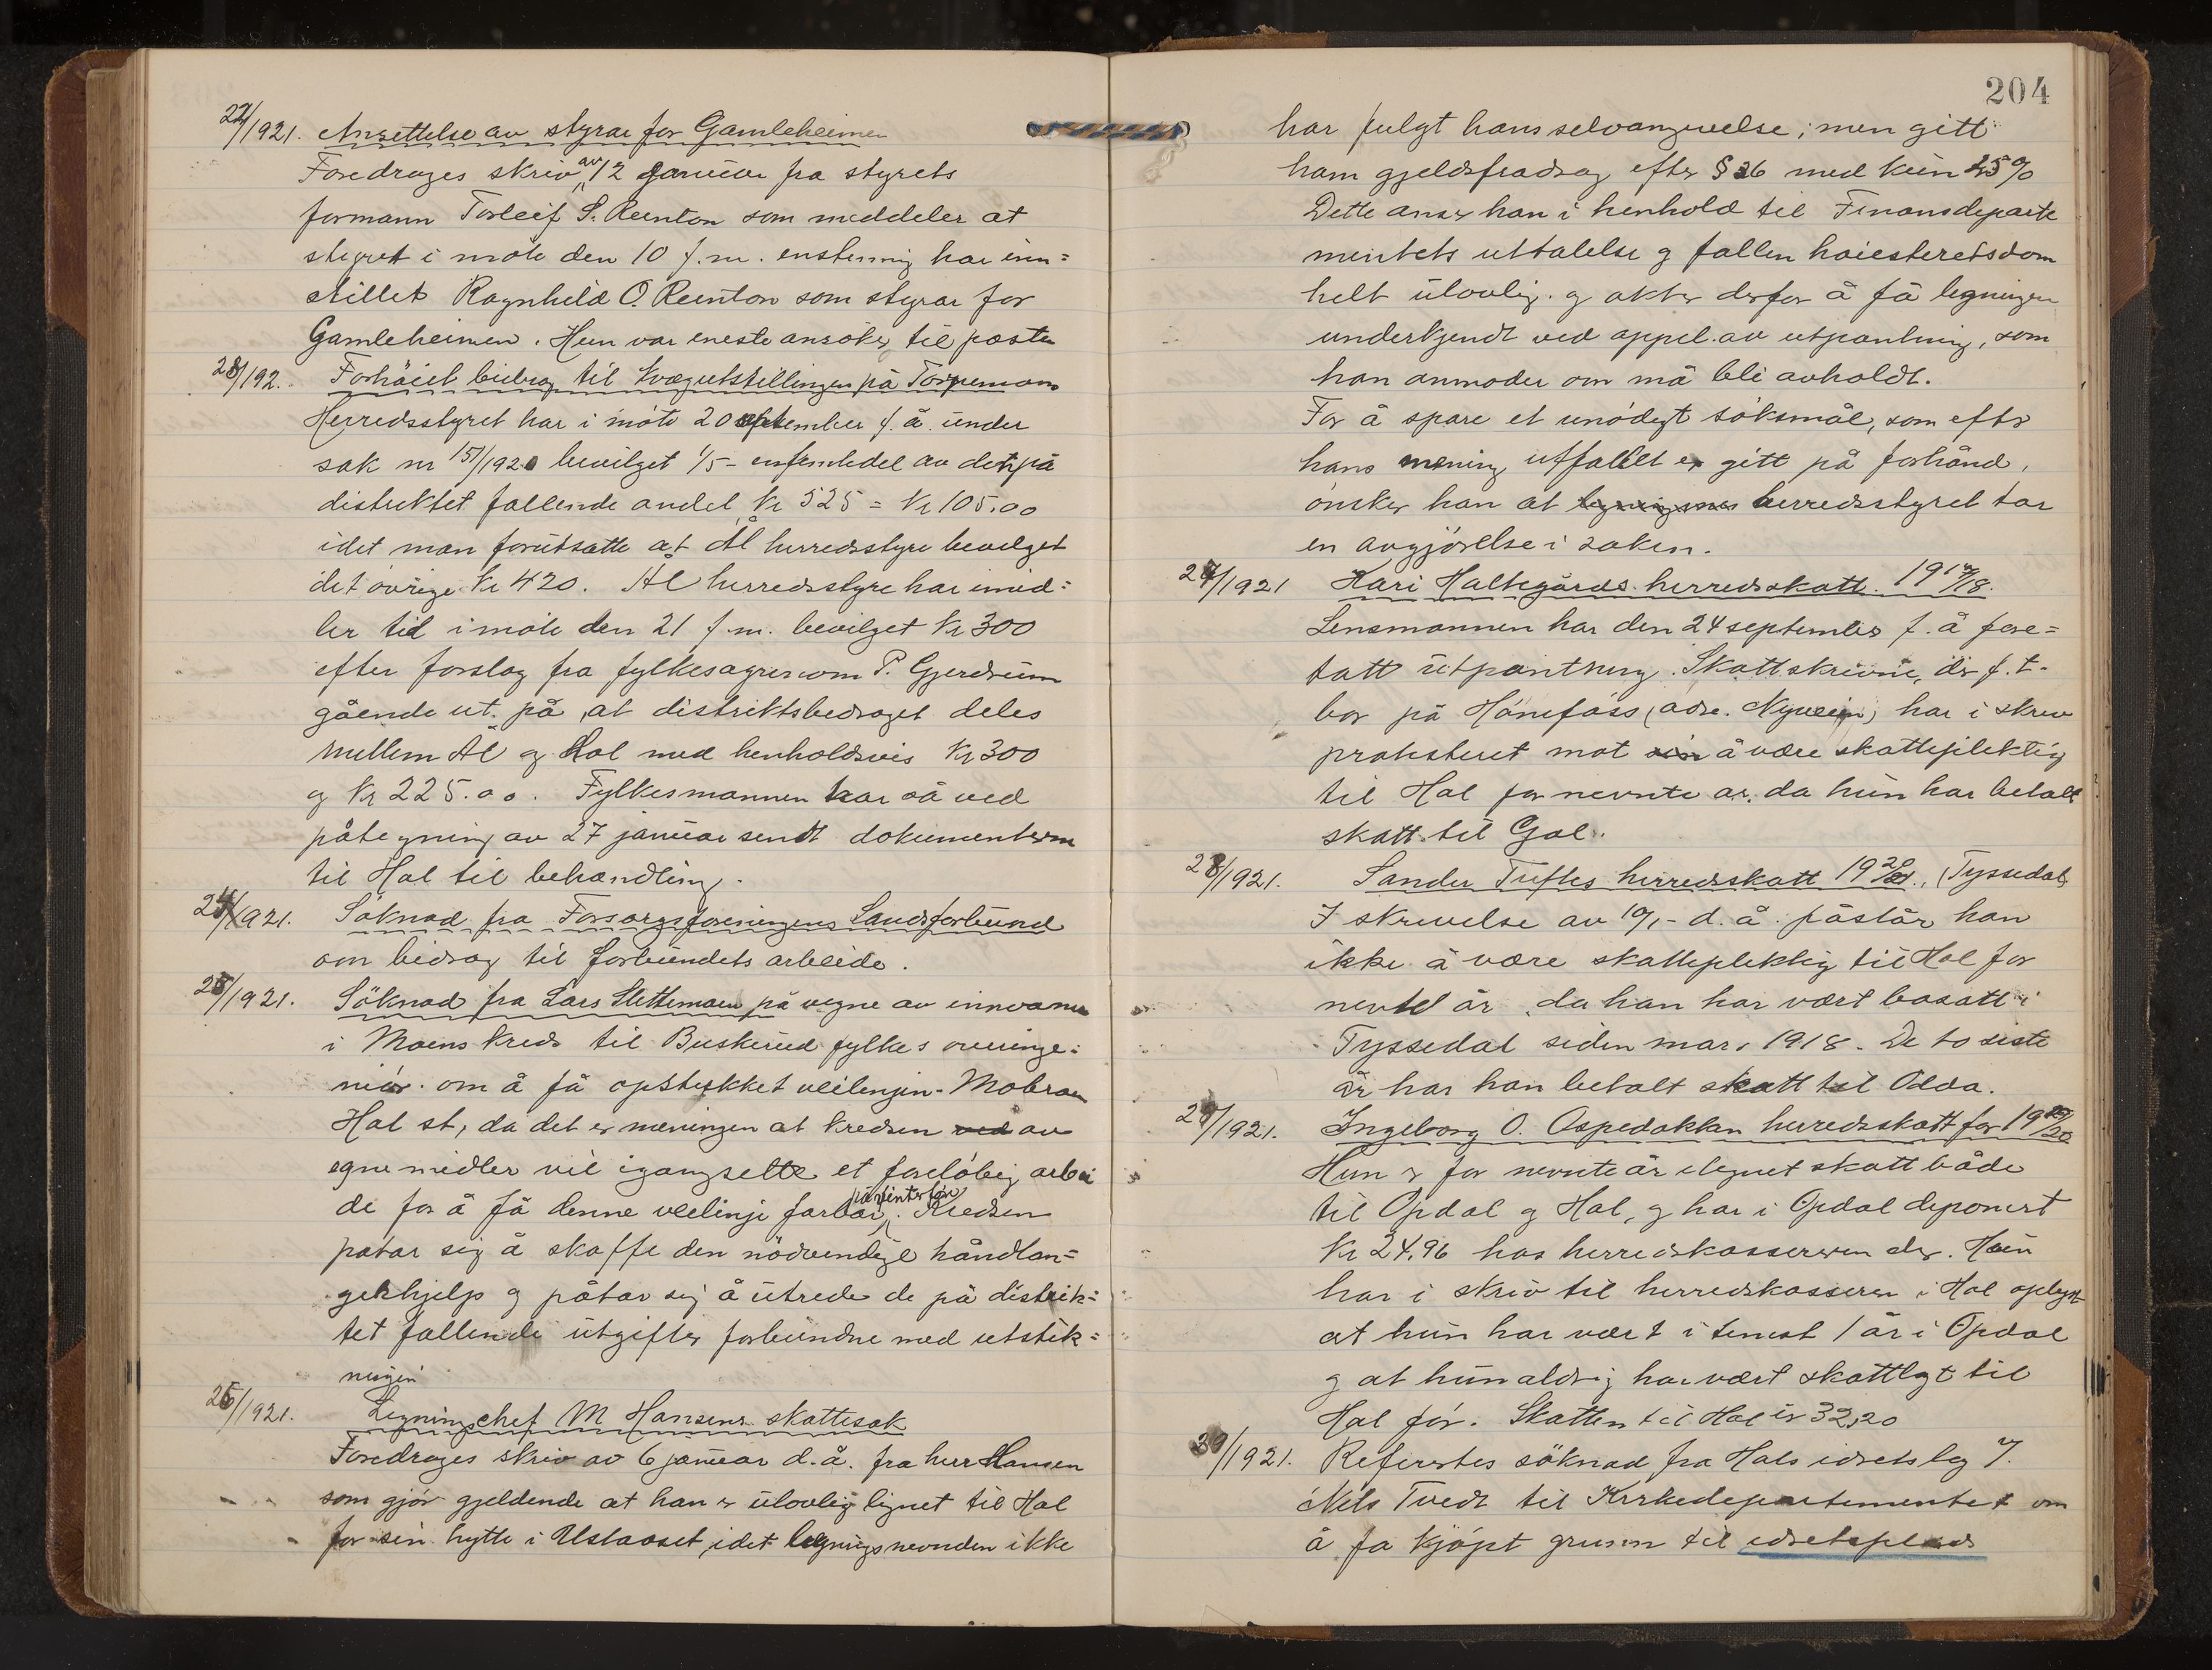 22/1921. Ansettelse av styrar for Gamleheimen
Foredrages skriv av 12 januar fra styrets
formann Torleif S. Reinton som meddeler at
styret i møte den 10 f.m. enstemmig har inn=
stillet Ragnhild O. Reinton som styrar for
Gamleheimen. Hun var eneste ansøker til posten
23/192. Forhøiet bidrag til kvægutstillingen på Torpemoen
Herredsstyret har i møte 20 september f. å. under
sak nr 151/1920 bevilget 1/5 - enfemtedel av det på
distriktet fallende andel, kr 525 = kr 105.00
idet man forutsatte at Ål herredsstyre bevilget
det øvrige kr 420. Ål herredsstyre har imid=
ler tid i møte den 21 f.m. bevilget kr 300
efter forslag fra fylkesagronom P. Gjerdrum
gående ut på, at distriktsbedraget deles
mellem Ål og Hol med henholdsvis kr 300
og kr 225.00. Fylkesmannen har så ved
påtegning av 27 januar sendt dokumenterne
til Hol til behandling.
24/1921. Søknad fra Forsorgsforeningens Landsforbund
om bidrag til forbundets arbeide.
25/1921. Søknad fra Lars Slettemoen på vegne av innvaanere
i Moens kreds til Buskerud fylkes overinge=
niør om å få opstukket veilinjen - Mobroen
Hol st, da det er meningen at kredsen ved av
egne midler vil igangsette et foreløbig arbei
de for å få denne veilinje farbar på vinterføre. Kredsen
patar sig å skaffe den nødvendige håndlan=
gerhjelp og påtar sig å utrede de på distrik=
tet fallende utgifter forbundne med utstik=
ningen
26/1921. Ligningschef M Hansens skattesak
Foredrages skriv av 6 januar d.å. fra herr Hansen
som gjør gjeldende at han er ulovlig lignet til Hol
for sin hytte i Ustaoset, idet ligningsnevnden ikke
204
har fulgt hans selvangivelse; men gitt
ham gjeldsfradrag efter § 26 med kun 25 %
Dette anser han i henhold til Finansdeparte
mentets uttalelse og fallen høiesteretsdom
helt ulovlig og akter derfor å få ligningen
underkjendt ved appel av utpantning, som
han anmoder om må bli avholdt.
For å spare et unødigt søksmål, som efter
hans mening utfallet er gitt på forhånd,
ønsker han at herredsstyret tar
en avgjørelse i saken.
27/1921 Kari Haltegårds herredsskatt 1917/18.
Lensmannen har den 24 september f. å fore=
tatt utpantning. Skattskrivne, der f. t.
bor på Hønefoss, (adr. Nyveien) har i skriv
protestert mot sin å være skattepliktig
til Hol for nevnte ar, da hun har betalt
skatt til Gol.
28/1921. Sander Tuftes herredsskatt 1920/21., (Tyssedal)
I skrivelse av 10/1- d. å. påstår han
ikke å være skattepliktig til Hol for
nevnte år, da han har vært bosatt i
Tyssedal siden mars 1918. De to siste
år har han betalt skatt til Odda.
29/1921. Ingeborg O. Ospedokken herredsskatt for 1919/20
Hun er for nevnte år ilignet skatt både
til Opdal og Hol, og har i Opdal deponert
kr 24.96 hos herredskassereren der. Hun
har i skriv til herredskasseren i Hol oplyst
at hun har vært i tenest 1 år i Opdal
og at hun aldrig har vært skattlagt til
Hol før. Skatten til Hol er 32,20
30/1921. Refererte søknad fra Hols idretslag v/
Nils Tvedt til Kirkedepartementet om
å fa kjøpt grunn til idretsplads